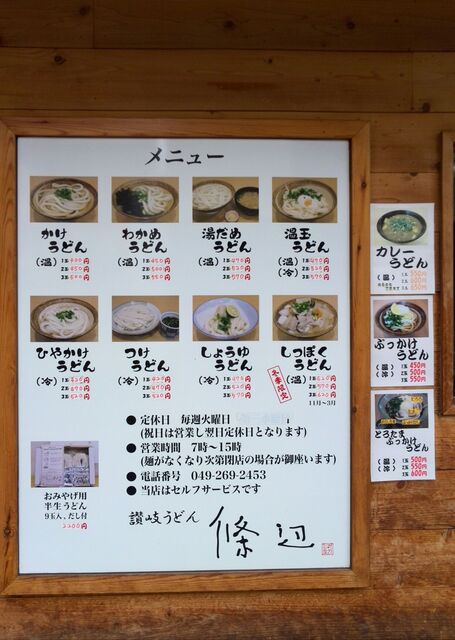 メニュー
かけ
うどん
(温) 1玉 400円
2玉 450円
3玉 500円
わかめ
うどん
(温) 1玉 450円
2玉 500円
3玉 550円
湯だめ
うどん
(温) 1玉 470円
2玉 520円
3玉 570円
温玉
うどん
(温) 1玉 470円
(冷) 2玉 520円
3玉 570円
ひやかけ
うどん
(冷)
つけ
うどん
(冷)
しょうゆ
うどん
(冷)
しっぽく
うどん
冬季限定
(温)
11月〜3月
おみやげ用
半生うどん
9玉入、だし付
2200円
● 定休日 毎週火曜日
(祝日は営業し翌日定休日となります)
● 営業時間 7時〜15時
(麺がなくなり次第閉店の場合が御座います)
● 電話番号 049-269-2453
● 当店はセルフサービスです
讃岐うどん 條辺
カレー
うどん
(温) 1玉 550円
2玉 600円
3玉 650円
ぶっかけ
うどん
(温) 1玉 450円
(冷) 2玉 500円
3玉 550円
とろたま
ぶっかけ
うどん
(冷) 1玉 500円
2玉 550円
3玉 600円